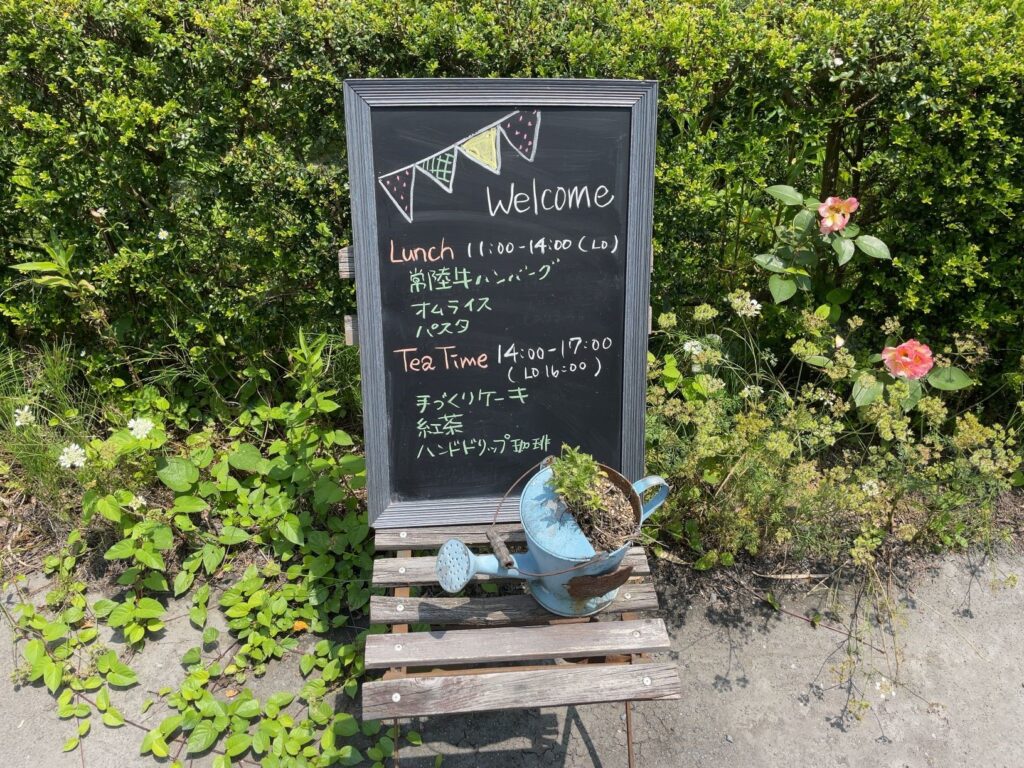 Welcome
Lunch 11:00-14:00 (LO)
常陸牛ハンバーグ
オムライス
パスタ
Tea Time 14:00-17:00
(LO 16:00)
手づくりケーキ
紅茶
ハンドドリップ珈琲